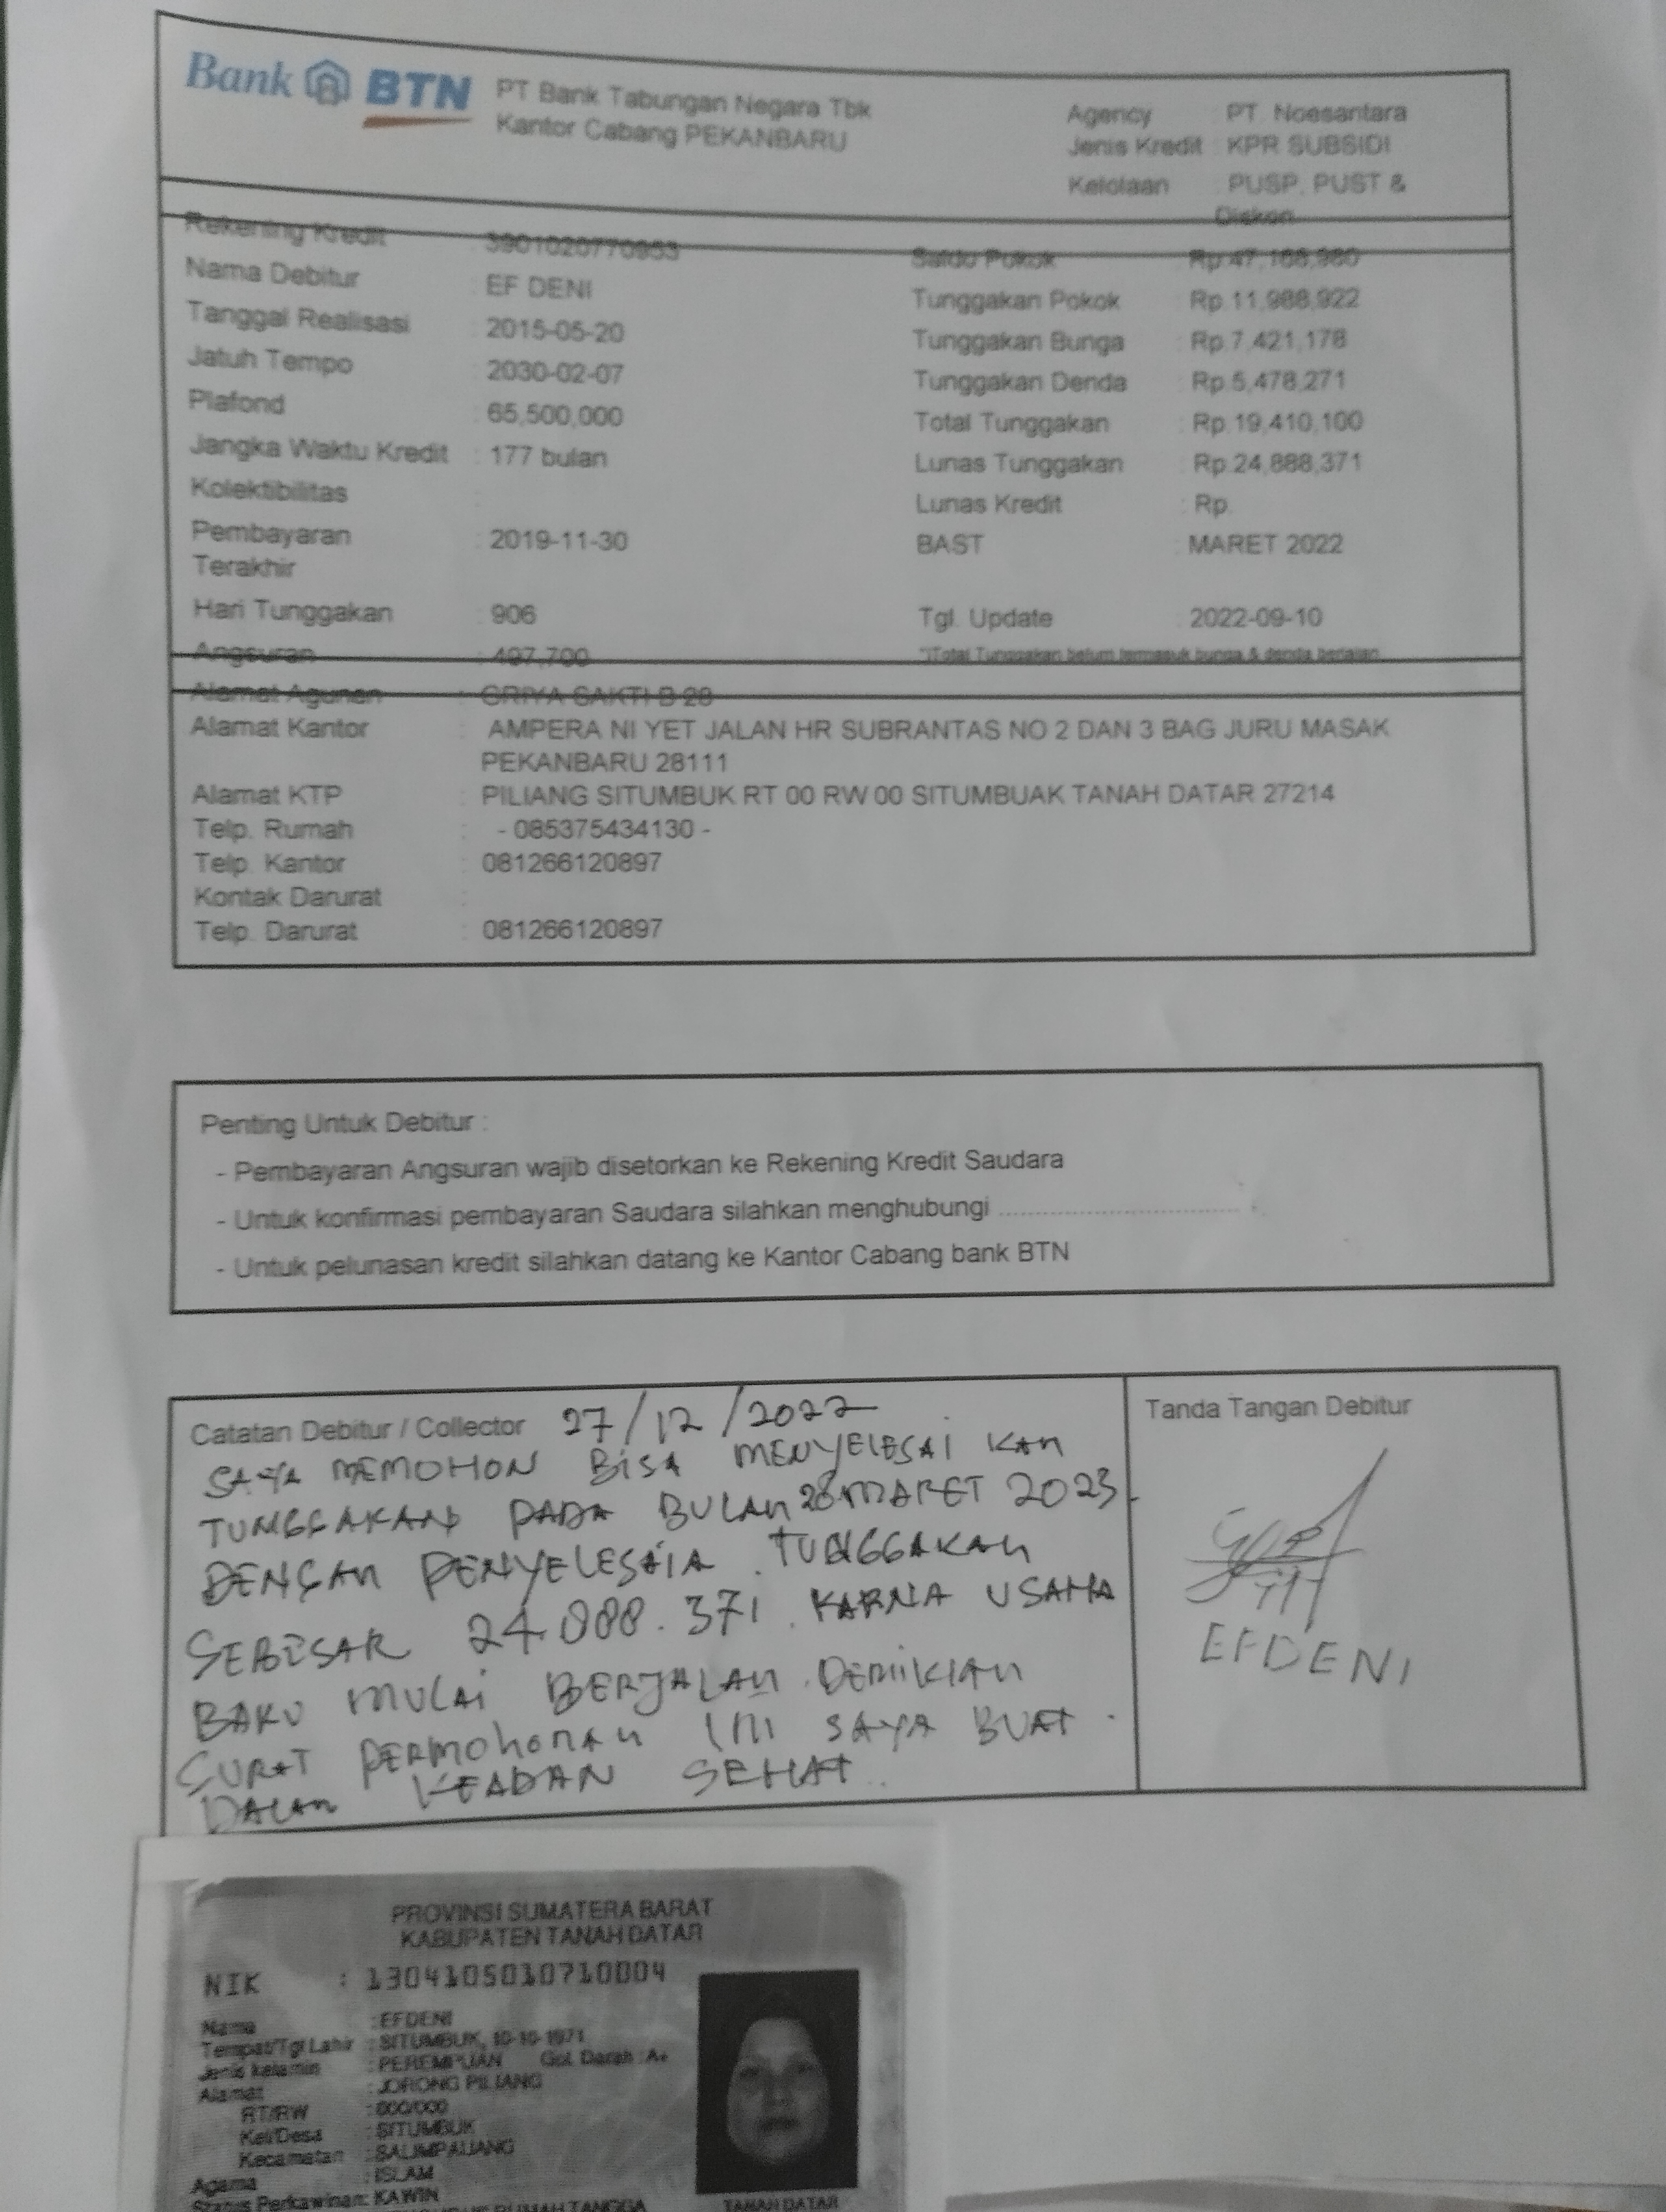 Bank BTN PT Bank Tabungan Negara Tbk
Kantor Cabang PEKANBARU
Agency : PT. Noesantara
Jenis Kredit : KPR SUBSIDI
Kelolaan : PUSP, PUST &
Diskon
Rekening Kredit : 3901020770953
Nama Debitur : EF DENI
Tanggal Realisasi : 2015-05-20
Jatuh Tempo : 2030-02-07
Plafond : 65,500,000
Jangka Waktu Kredit : 177 bulan
Kolektibilitas :
Pembayaran Terakhir : 2019-11-30
Hari Tunggakan : 906
Angsuran : 497,700
Saldo Pokok : Rp.47,168,980
Tunggakan Pokok : Rp.11,988,922
Tunggakan Bunga : Rp.7,421,178
Tunggakan Denda : Rp.5,478,271
Total Tunggakan : Rp.19,410,100
Lunas Tunggakan : Rp.24,888,371
Lunas Kredit : Rp.
BAST : MARET 2022
Tgl. Update : 2022-09-10
*)Total Tunggakan belum termasuk bunga & denda berjalan
Alamat Agunan : GRIYA SAKTI B 28
Alamat Kantor : AMPERA NI YET JALAN HR SUBRANTAS NO 2 DAN 3 BAG JURU MASAK
PEKANBARU 28111
Alamat KTP : PILIANG SITUMBUK RT 00 RW 00 SITUMBUAK TANAH DATAR 27214
Telp. Rumah : - 085375434130 -
Telp. Kantor : 081266120897
Kontak Darurat :
Telp. Darurat : 081266120897
Penting Untuk Debitur :
- Pembayaran Angsuran wajib disetorkan ke Rekening Kredit Saudara
- Untuk konfirmasi pembayaran Saudara silahkan menghubungi ........................................
- Untuk pelunasan kredit silahkan datang ke Kantor Cabang bank BTN
Catatan Debitur / Collector 27/12/2022
SAYA MEMOHON BISA MENYELESAIKAN
TUNGGAKAN PADA BULAN 28 MARET 2023.
DENGAN PENYELESAIA TUNGGAKAN
SEBESAR 24.888.371. KARNA USAHA
BARU MULAI BERJALAN. DEMIKIAN
SURAT PERMOHONAN INI SAYA BUAT.
DALAM KEADAN SEHAT.
Tanda Tangan Debitur
EFDENI
PROVINSI SUMATERA BARAT
KABUPATEN TANAH DATAR
NIK : 1304105010710004
Nama : EFDENI
Tempat/Tgl Lahir : SITUMBUK, 10-10-1971
Jenis kelamin : PEREMPUAN Gol. Darah : A+
Alamat : JORONG PILIANG
RT/RW : 000/000
Kel/Desa : SITUMBUK
Kecamatan : SALIMPAUANG
Agama : ISLAM
Status Perkawinan: KAWIN
RUMAH TANGGA
TANAH DATAR